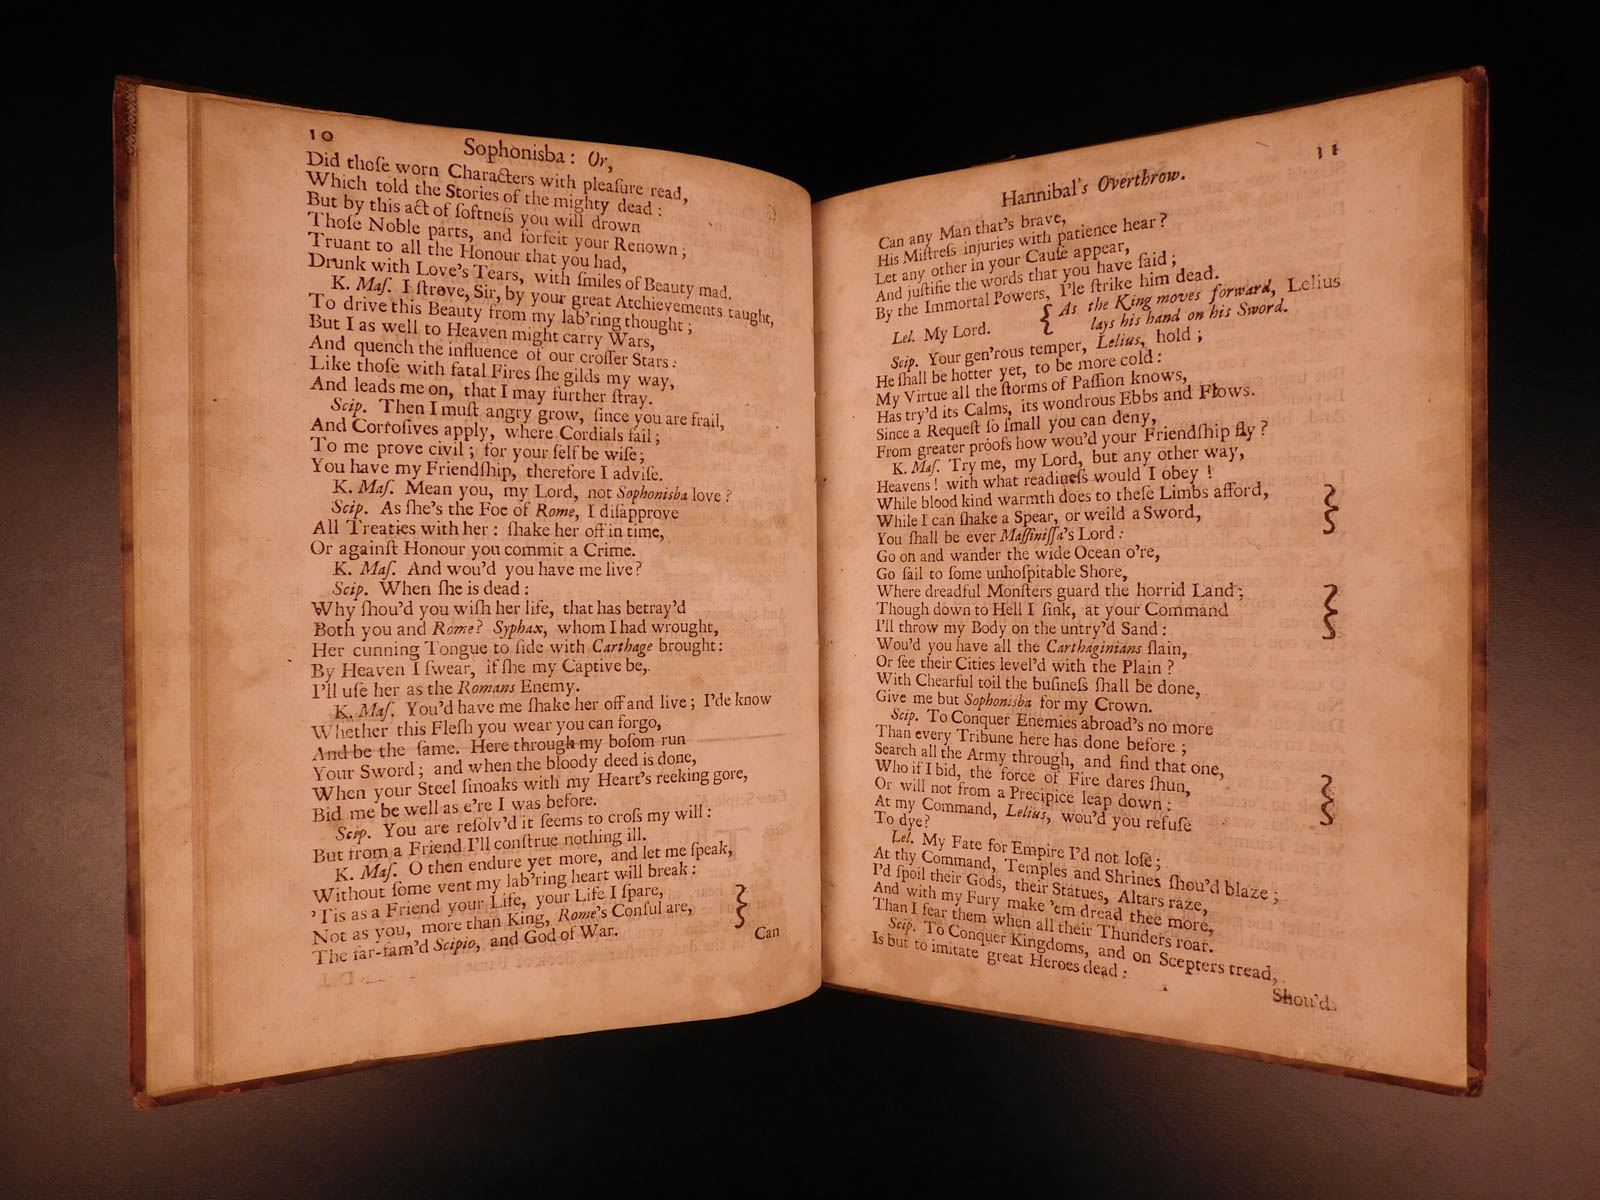 10
Sophonisba: Or,
Did thoſe worn Characters with pleaſure read,
Which told the Stories of the mighty dead:
But by this act of ſoftneſs you will drown
Thoſe Noble parts, and forfeit your Renown;
Truant to all the Honour that you had,
Drunk with Love's Tears, with ſmiles of Beauty mad.
K. Maſ. I ſtrove, Sir, by your great Atchievements taught,
To drive this Beauty from my lab'ring thought;
But I as well to Heaven might carry Wars,
And quench the influence of our croſſer Stars:
Like thoſe with fatal Fires ſhe gilds my way,
And leads me on, that I may further ſtray.
Scip. Then I muſt angry grow, ſince you are frail,
And Corroſives apply, where Cordials fail;
To me prove civil; for your ſelf be wiſe;
You have my Friendſhip, therefore I adviſe.
K. Maſ. Mean you, my Lord, not Sophonisba love?
Scip. As ſhe's the Foe of Rome, I diſapprove
All Treaties with her: ſhake her off in time,
Or againſt Honour you commit a Crime.
K. Maſ. And wou'd you have me live?
Scip. When ſhe is dead:
Why ſhou'd you wiſh her life, that has betray'd
Both you and Rome? Syphax, whom I had wrought,
Her cunning Tongue to ſide with Carthage brought:
By Heaven I ſwear, if ſhe my Captive be,
I'll uſe her as the Romans Enemy.
K. Maſ. You'd have me ſhake her off and live; I'de know
Whether this Fleſh you wear you can forgo,
And be the ſame. Here through my boſom run
Your Sword; and when the bloody deed is done,
When your Steel ſmoaks with my Heart's reeking gore,
Bid me be well as e're I was before.
Scip. You are reſolv'd it ſeems to croſs my will:
But from a Friend I'll conſtrue nothing ill.
K. Maſ. O then endure yet more, and let me ſpeak,
Without ſome vent my lab'ring heart will break:
'Tis as a Friend your Life, your Life I ſpare,
Not as you, more than King, Rome's Conſul are,
The far-fam'd Scipio, and God of War.
Can
11
Hannibal's Overthrow.
Can any Man that's brave,
His Miſtreſs injuries with patience hear?
Let any other in your Cauſe appear,
And juſtifie the words that you have ſaid;
By the Immortal Powers, I'le ſtrike him dead.
Lel. My Lord. { As the King moves forward, Lelius
lays his hand on his Sword.
Scip. Your gen'rous temper, Lelius, hold;
He ſhall be hotter yet, to be more cold:
My Virtue all the ſtorms of Paſſion knows,
Has try'd its Calms, its wondrous Ebbs and Flows.
Since a Requeſt ſo ſmall you can deny,
From greater proofs how wou'd your Friendſhip fly?
K. Maſ. Try me, my Lord, but any other way,
Heavens! with what readineſs would I obey!
While blood kind warmth does to theſe Limbs afford,
While I can ſhake a Spear, or weild a Sword,
You ſhall be ever Maſſiniſſa's Lord:
Go on and wander the wide Ocean o're,
Go ſail to ſome unhoſpitable Shore,
Where dreadful Monſters guard the horrid Land;
Though down to Hell I ſink, at your Command
I'll throw my Body on the untry'd Sand:
Wou'd you have all the Carthaginians ſlain,
Or ſee their Cities level'd with the Plain?
With Chearful toil the buſineſs ſhall be done,
Give me but Sophonisba for my Crown.
Scip. To Conquer Enemies abroad's no more
Than every Tribune here has done before;
Search all the Army through, and find that one,
Who if I bid, the force of Fire dares ſhun,
Or will not from a Precipice leap down:
At my Command, Lelius, wou'd you refuſe
To dye?
Lel. My Fate for Empire I'd not loſe;
At thy Command, Temples and Shrines ſhou'd blaze;
I'd ſpoil their Gods, their Statues, Altars raze,
And with my Fury make 'em dread thee more,
Than I fear them when all their Thunders roar.
Scip. To Conquer Kingdoms, and on Scepters tread,
Is but to imitate great Heroes dead:
Shou'd